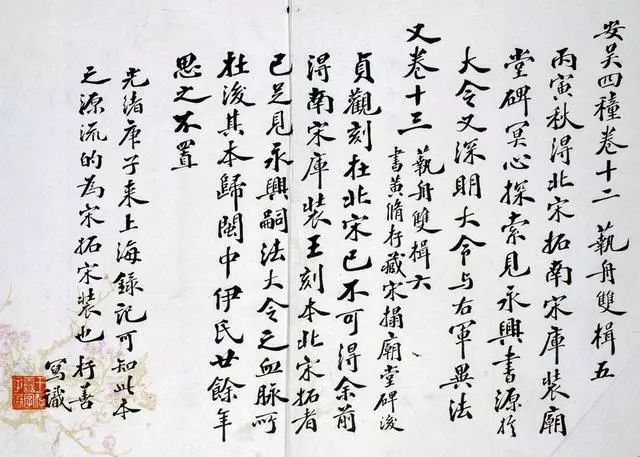 安吴四種卷十二 藝舟雙楫五
丙寅秋得北宋拓南宋庫裝廟
堂碑冥心探索見永興書源於
大令又深明大令與右軍異法
又卷十三 藝舟雙楫六
書黄脩存藏宋搨廟堂碑後
貞觀刻在北宋已不可得余前
得南宋庫裝王刻本北宋拓者
已足見永興嗣法大令之血脉所
在後其本歸閩中伊氏廿餘年
思之不置
光緒庚子來上海錄記可知此本
之源流的為宋拓宋裝也 存善
寫識